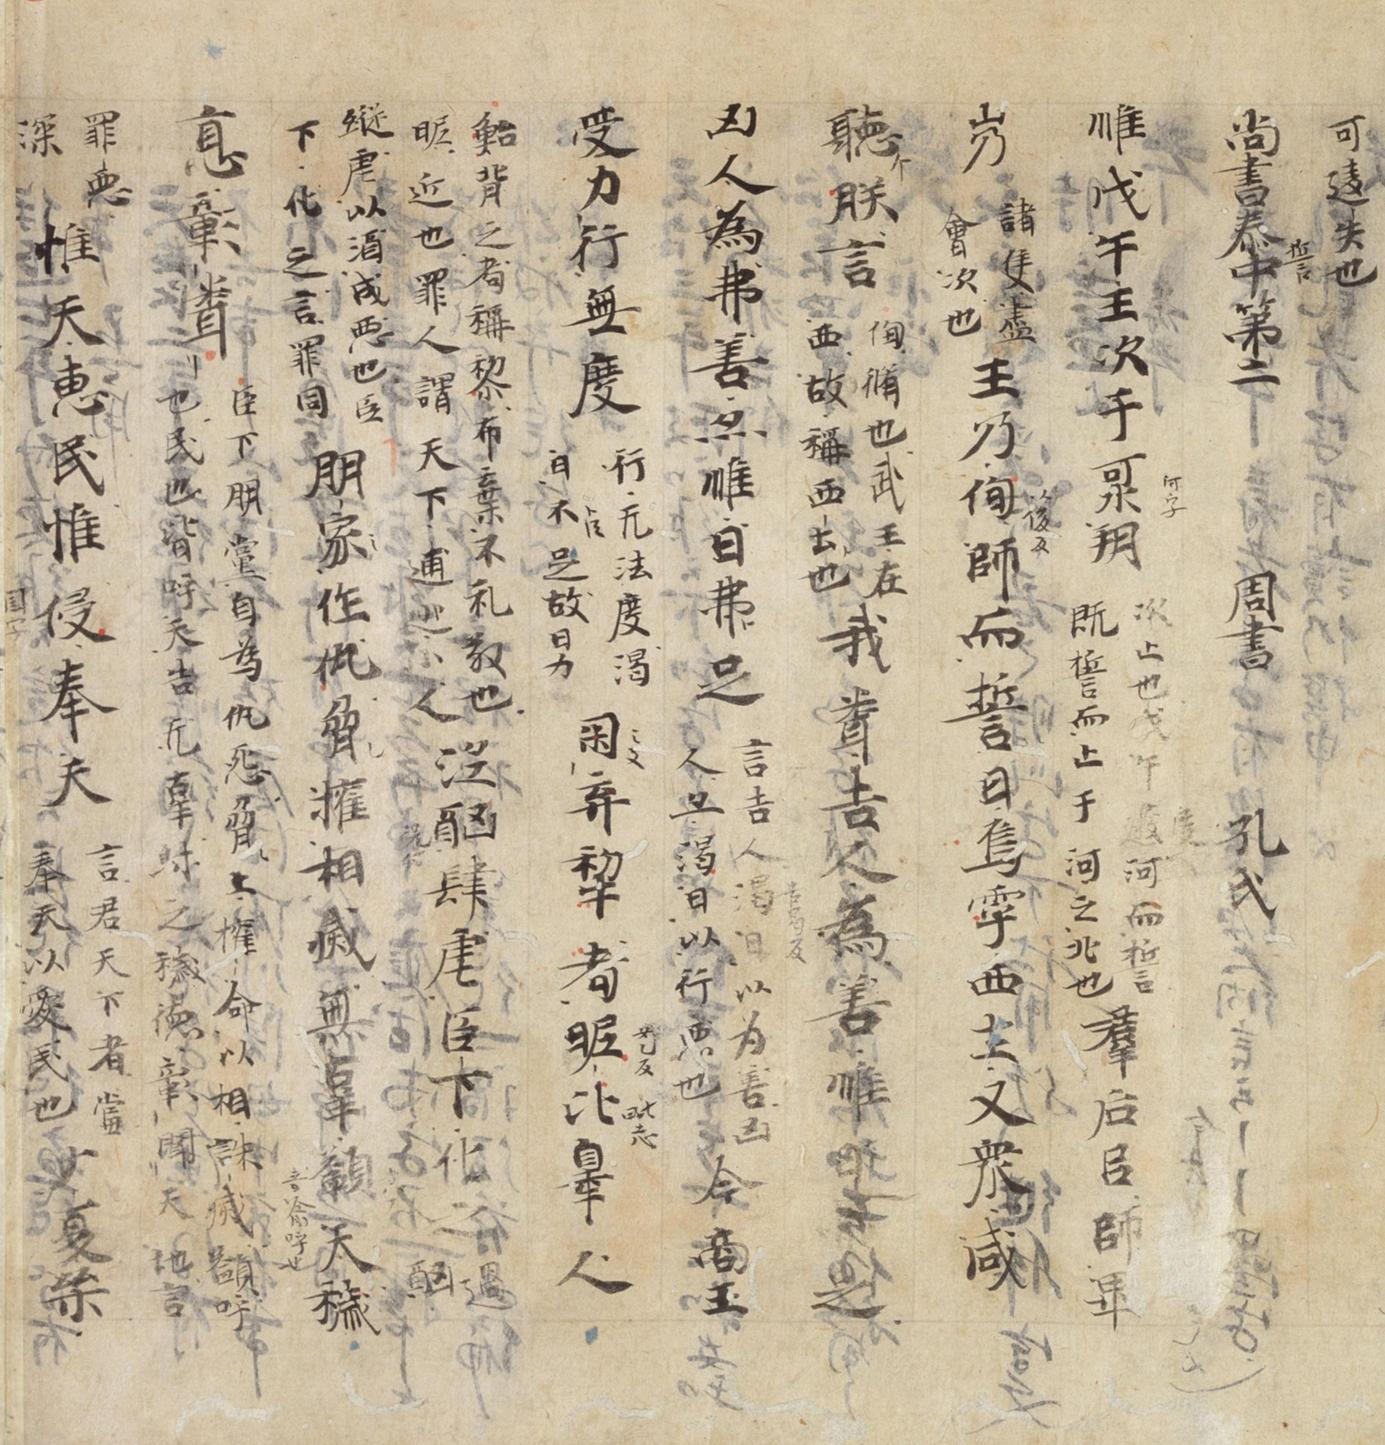 可遠失也
尚書泰誓中第二 周書 孔氏
惟戊午王次于河朔 次止也戊午渡河而誓既誓而止于河之北也 羣后㠯師畢
㑹 諸侯盡會次也 王乃徇師而誓曰烏雩西土又衆咸
聽朕言 徇循也武王在西故稱西土也 我聞吉人為善惟日弗足
凶人為弗善亦惟日弗足 言吉人渴日以为善凶人亦渴日以行惡也 今商王
受力行無度 行无法度渴日不足故曰力 㓙弃犂耉昵比辠人
鮐背之耇稱犂布棄不礼敬也昵近也罪人謂天下逋逃人 淫酗肆虐臣下化之 過酗
縱虐以酒成惡也臣下化之言罪同 朋家作仇脅權相滅無辜籲天穢
悳彰聞 臣下朋黨自為仇死脅上權命以相誅滅籲呼也民皆呼天告无辜紂之穢德彰聞天地言
罪惡深 惟天惠民惟侵奉天 言君天下者當奉天以愛民也 ナ夏桀